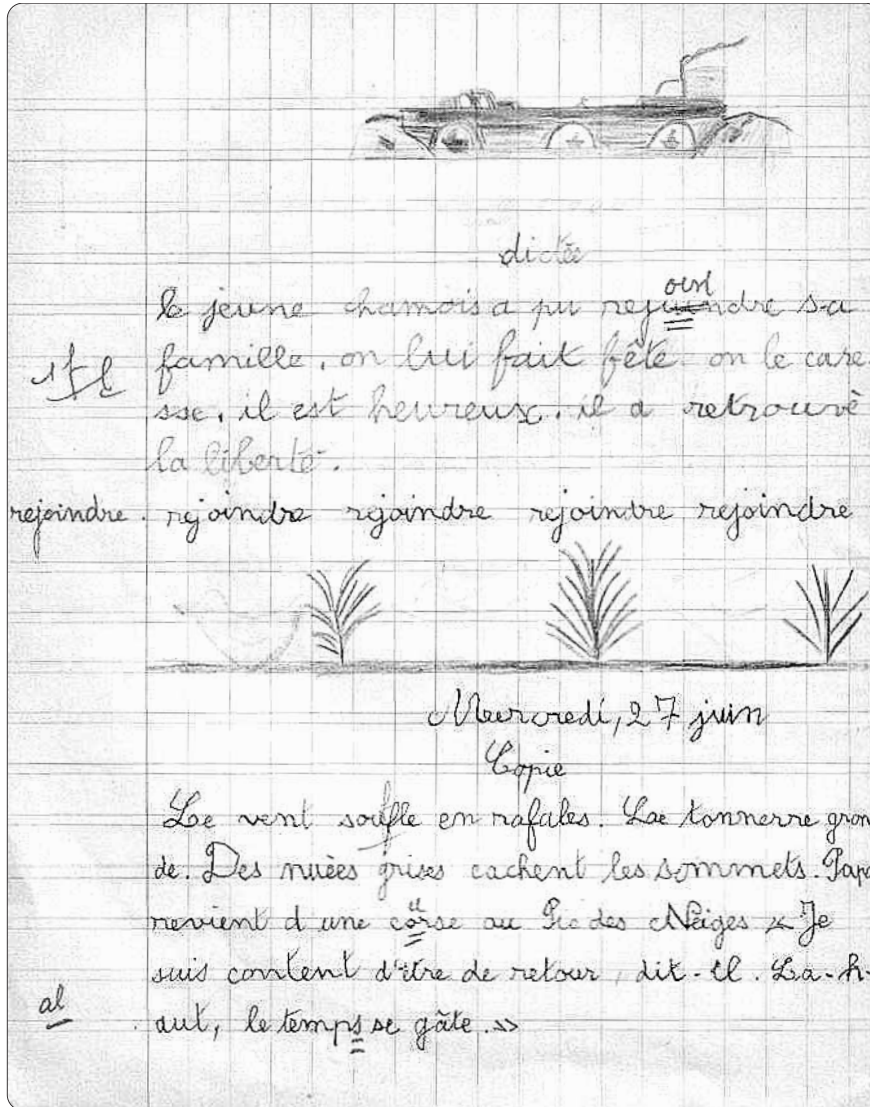 dictée
oin
le jeune chamois a pu rejoindre sa
famille. on lui fait fête. on le care
sse. il est heureux. il a retrouvé
la liberté.
rejoindre. rejoindre rejoindre rejoindre rejoindre
Mercredi, 27 juin
Copie
Le vent souffle en rafales. Le tonnerre gron
de. Des nuées grises cachent les sommets. Papa
u
revient d'une corse au Pic des Neiges « Je
suis content d'être de retour, dit-il. Là-h-
al
aut, le temps se gâte. »